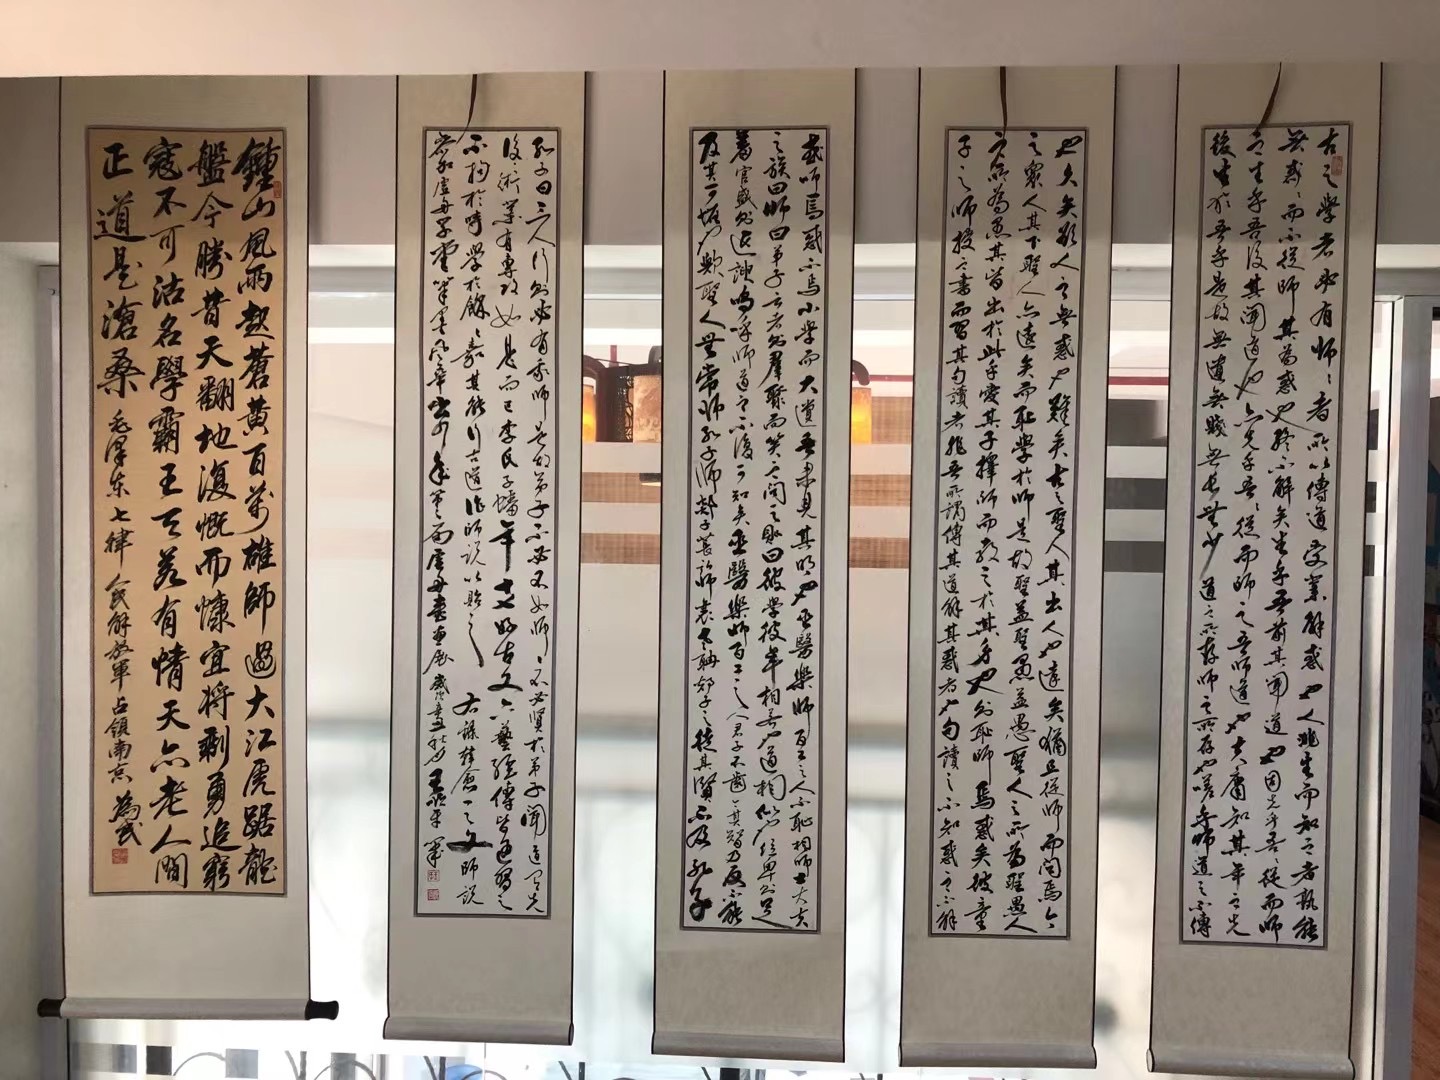 古之學者必有師々者所以傳道受業解惑也人非生而知之者孰能
無惑惑而不從師其為惑也終不解矣生乎吾前其聞道也固先乎吾々從而師
之生乎吾後其聞道也亦先乎吾々從而師之吾師道也夫庸知其年之先
後生於吾乎是故無貴無賤無長無少道之所存師之所存也嗟乎師道之不傳
也久矣欲人之無惑也難矣古之聖人其出人也遠矣猶且從師而問焉今
之眾人其下聖人亦遠矣而恥學於師是故聖益聖愚益愚聖人之所為聖愚人
之所為愚其皆出於此乎愛其子擇師而教之於其身也則恥師焉惑矣彼童
子之師授之書而習其句讀者非吾所謂傳其道解其惑者也句讀之不知惑之不解
或師焉惑不焉小學而大遺吾未見其明也巫醫樂師百工之人不恥相師士大夫
之族曰師曰弟子云者則羣聚而笑之問之則曰彼與彼年相若也道相似也位卑則足
羞官盛則近諛嗚呼師道之不復可知矣巫醫樂師百工之人君子不齒今其智乃反不能
及其可怪也歟聖人無常師孔子師郯子萇弘師襄老聃郯子之徒其賢不及孔子
孔子曰三人行則必有我師是故弟子不必不如師々不必賢於弟子聞道有先
後術業有專攻如是而已李氏子蟠年十七好古文六藝經傳皆通習之
不拘於時學於餘々嘉其能行古道作師說以貽之 右錄韓愈之文師說
鍾山風雨起蒼黃百萬雄師過大江虎踞龍
盤今勝昔天翻地復慨而慷宜將剩勇追窮
寇不可沽名學霸王天若有情天亦老人間
正道是滄桑 毛澤東七律人民解放軍占領南京